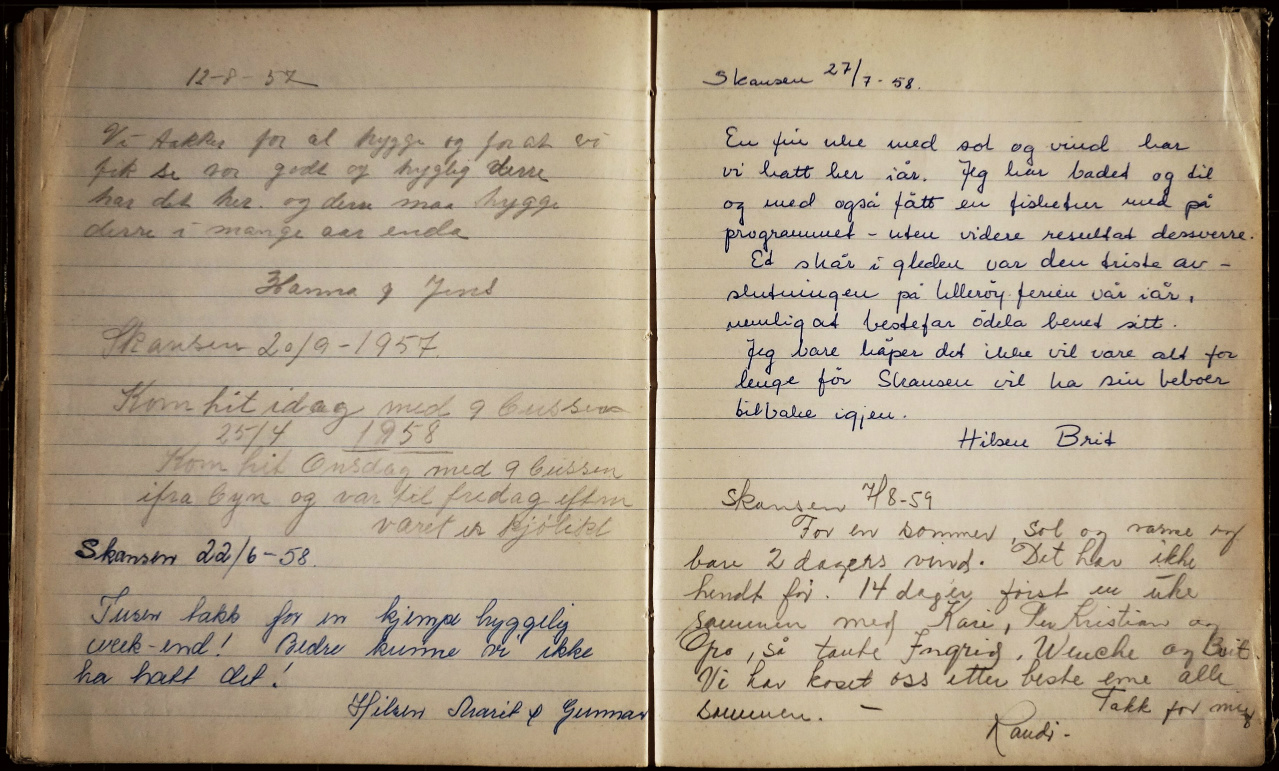 12-8-57
Vi takker for al hygge og for at vi
fik se vor godt og hyglig derre
har det her. og derre maa hygge
derre i mange aar enda
Hanna & Jens
Skansen 20/9-1957.
Kom hit idag med 9 bussen
25/4 1958
Kom hit Onsdag med 9 bussen
ifra byn og var til fredag eftm
været er kjøligt
Skansen 22/6-58.
Tusen takk for en kjempe hyggelig
week-end! Bedre kunne vi ikke
ha hatt det!
Hilsen Marit & Gunnar
Skansen 27/7-58.
En fin uke med sol og vind har
vi hatt her iår. Jeg har badet og til
og med også fått en fisketur med på
programmet - uten videre resultat dessverre.
Et skår i gleden var den triste av-
slutningen på Ullerøy-ferien vår iår,
nemlig at bestefar ödela benet sitt.
Jeg bare håper det ikke vil vare alt for
lenge för Skansen vil ha sin beboer
tilbake igjen.
Hilsen Brit
Skansen 7/8-59
For en sommer, sol og varme og
bare 2 dagers vind. Det har ikke
hendt før. 14 dager, først en uke
sammen med Kari, Per Kristian og
, så tante Ingrid, Wenche og Brit.
Vi har koset oss etter beste evne alle
sammen. -
Takk for mig
Randi-